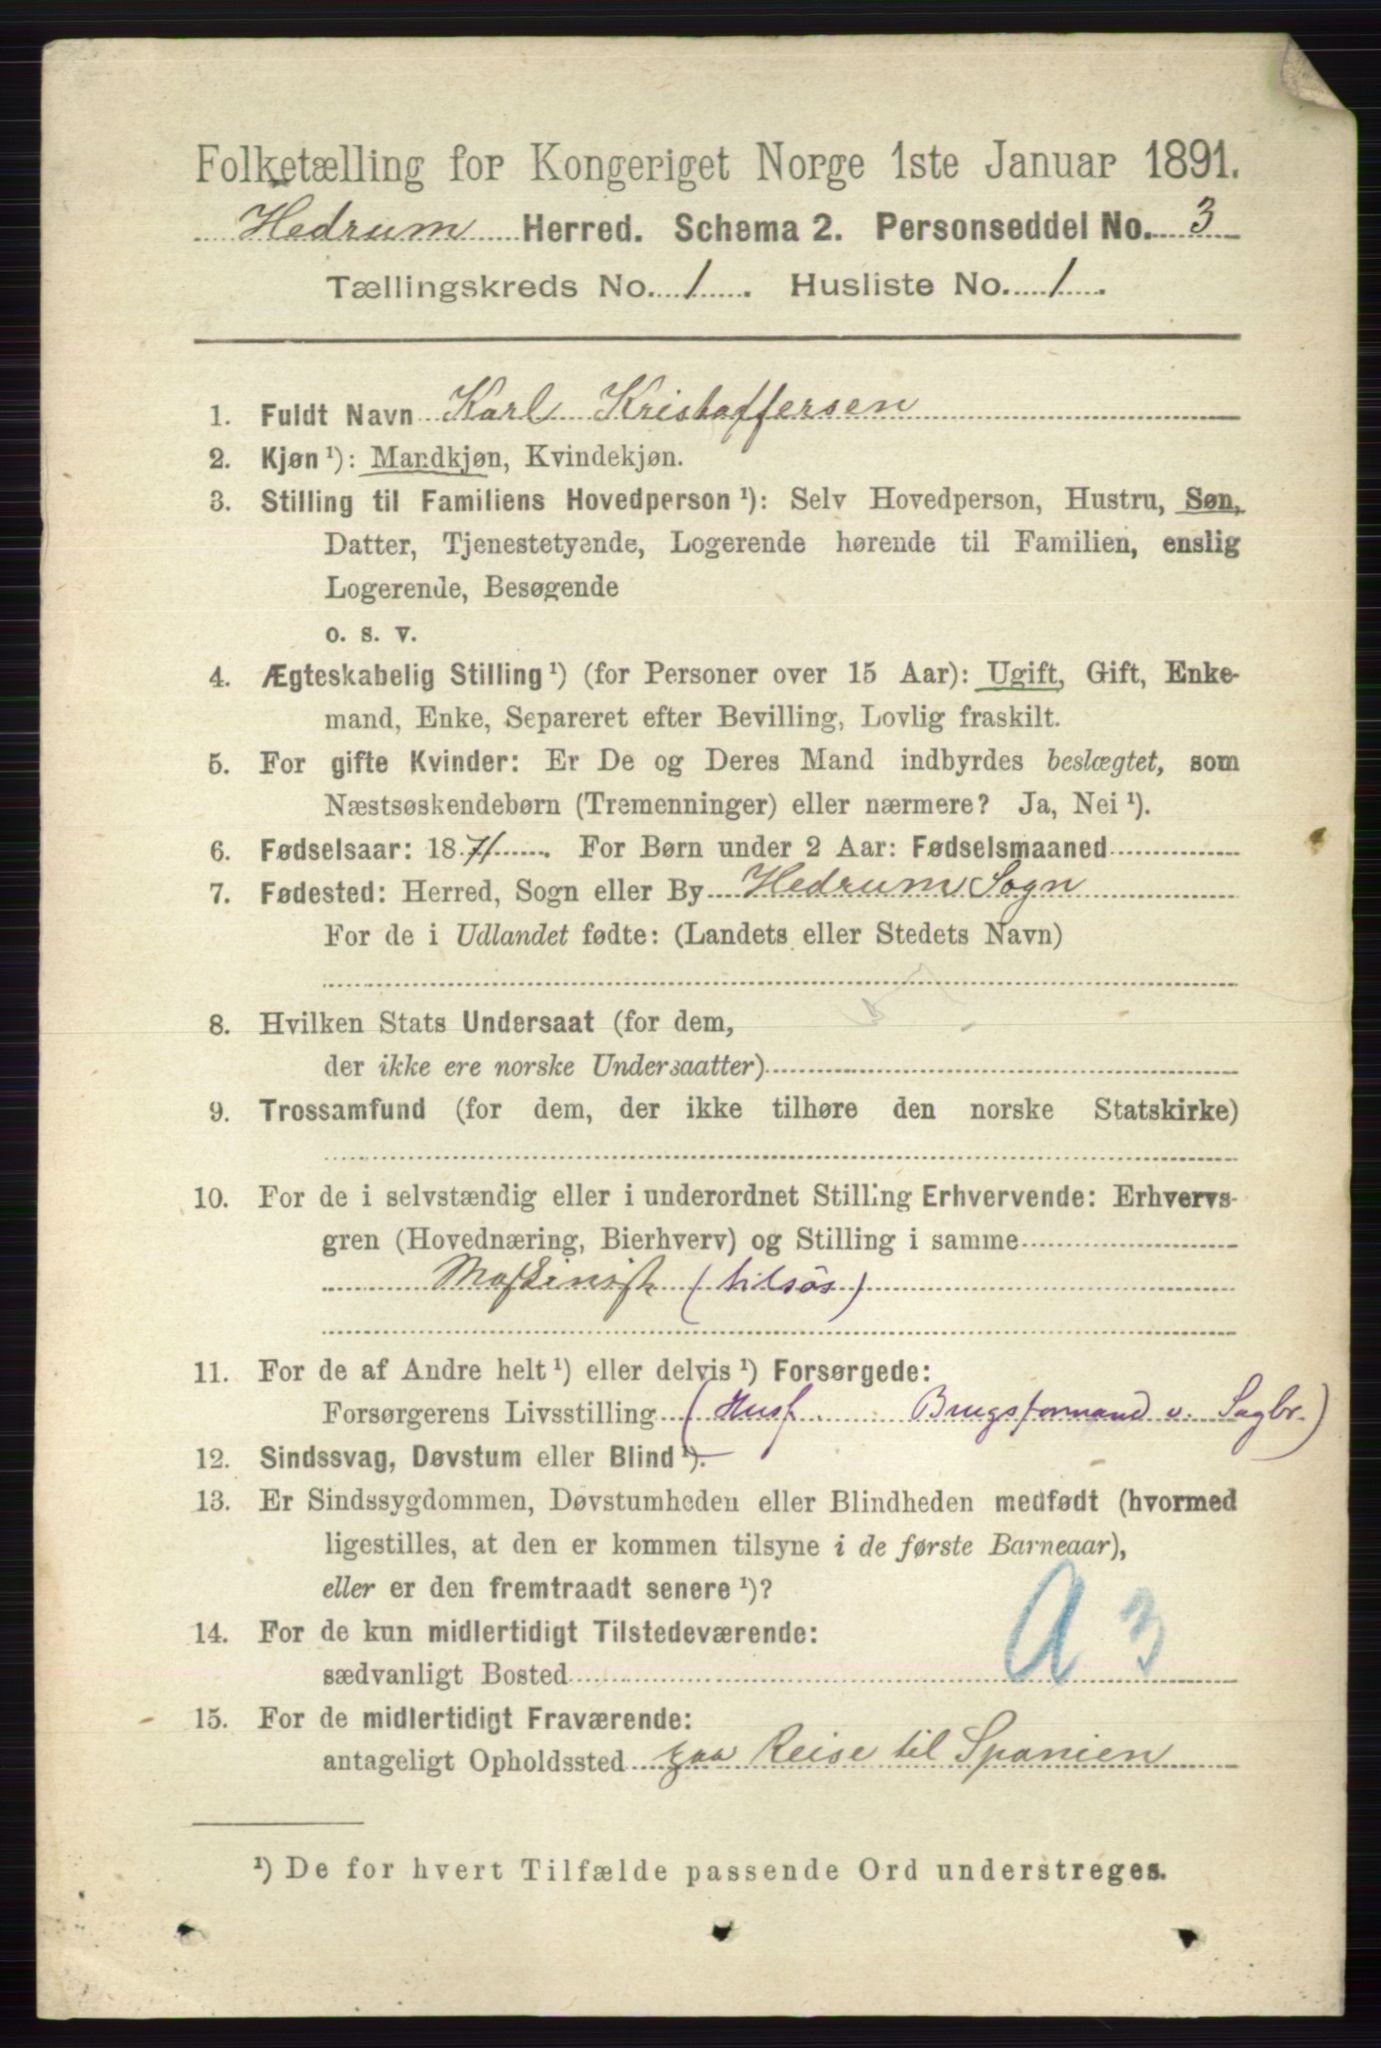 Folketælling for Kongeriget Norge 1ste Januar 1891.
Hedrum Herred. Schema 2. Personseddel No. 3
Tællingskreds No. 1. Husliste No. 1.
1. Fuldt Navn Karl Kristoffersen
2. Kjøn ¹): Mandkjøn, Kvindekjøn.
3. Stilling til Familiens Hovedperson ¹): Selv Hovedperson, Hustru, Søn,
Datter, Tjenestetyende, Logerende hørende til Familien, enslig
Logerende, Besøgende
o. s. v.
4. Ægteskabelig Stilling ¹) (for Personer over 15 Aar): Ugift, Gift, Enke-
mand, Enke, Separeret efter Bevilling, Lovlig fraskilt.
5. For gifte Kvinder: Er De og Deres Mand indbyrdes beslægtet, som
Næstsøskendebørn (Tremenninger) eller nærmere? Ja, Nei ¹).
6. Fødselsaar: 1871. For Børn under 2 Aar: Fødselsmaaned
7. Fødested: Herred, Sogn eller By Hedrum Sogn
For de i Udlandet fødte: (Landets eller Stedets Navn)
8. Hvilken Stats Undersaat (for dem,
der ikke ere norske Undersaatter)
9. Trossamfund (for dem, der ikke tilhøre den norske Statskirke)
10. For de i selvstændig eller i underordnet Stilling Erhvervende: Erhvervs-
gren (Hovednæring, Bierhverv) og Stilling i samme
Maskinist (tilsøs)
11. For de af Andre helt ¹) eller delvis ¹) Forsørgede:
Forsørgerens Livsstilling (Husf. Brugsformand v. Sagbr.)
12. Sindssvag, Døvstum eller Blind ¹).
13. Er Sindssygdommen, Døvstumheden eller Blindheden medfødt (hvormed
ligestilles, at den er kommen tilsyne i de første Barneaar),
eller er den fremtraadt senere ¹)?
A 3
14. For de kun midlertidigt Tilstedeværende:
sædvanligt Bosted
15. For de midlertidigt Fraværende:
antageligt Opholdssted paa Reise til Spanien
¹) De for hvert Tilfælde passende Ord understreges.